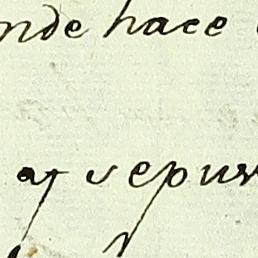 nde hace
ay sepur